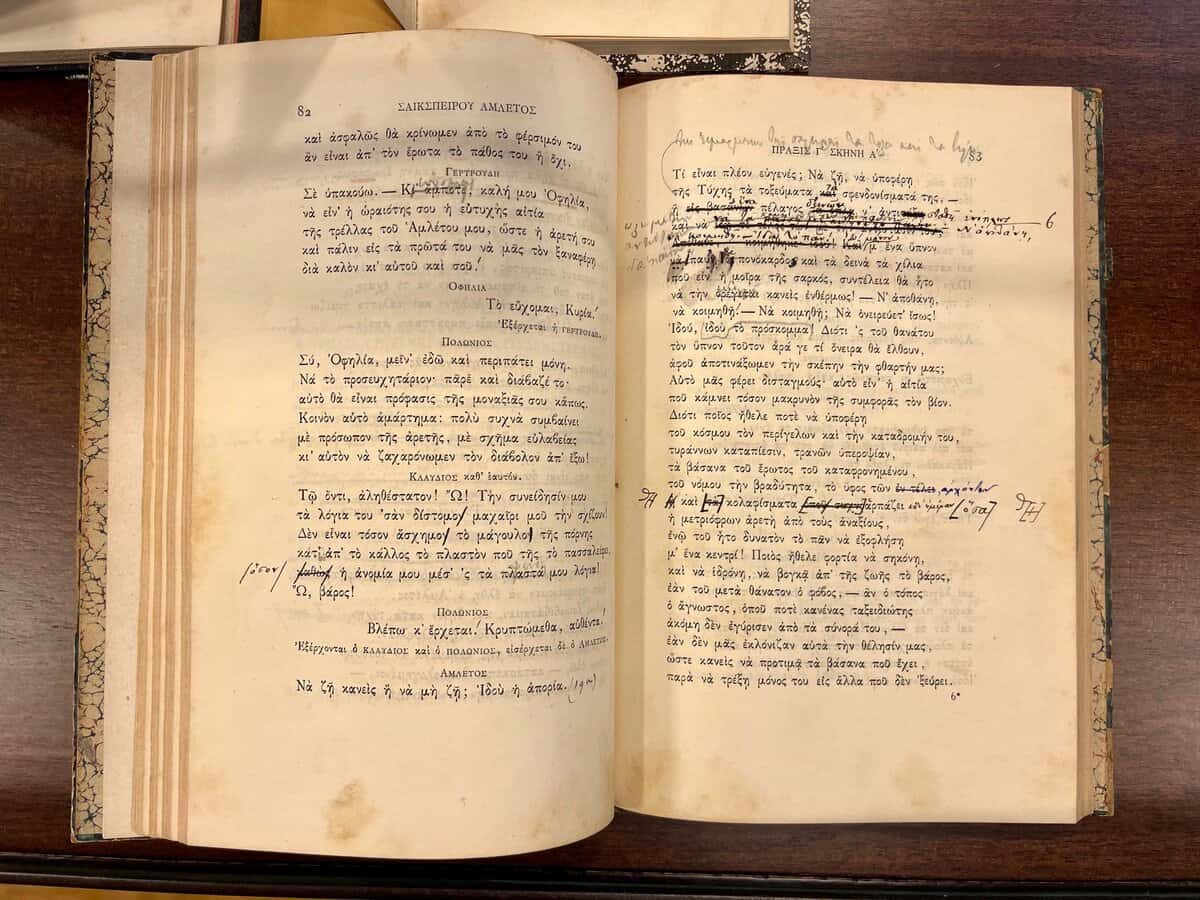 82
ΣΑΙΚΣΠΕΙΡΟΥ ΑΜΛΕΤΟΣ
καὶ ἀσφαλῶς θὰ κρίνωμεν ἀπὸ τὸ φέρσιμόν του
ἂν εἶναι ἀπ' τὸν ἔρωτα τὸ πάθος του ἢ ὄχι.
ΓΕΡΤΡΟΥΔΗ
Σὲ ὑπακούω. — Κι' ἄμποτε, καλή μου Ὀφηλία,
νὰ εἶν' ἡ ὡραιότης σου ἡ εὐτυχὴς αἰτία
τῆς τρέλλας τοῦ Ἀμλέτου μου, ὥστε ἡ ἀρετή σου
καὶ πάλιν εἰς τὰ πρῶτά του νὰ μᾶς τὸν ξαναφέρῃ
διὰ καλὸν κι' αὐτοῦ καὶ σοῦ!
ΟΦΗΛΙΑ
Τὸ εὔχομαι, Κυρία!
Ἐξέρχεται ἡ ΓΕΡΤΡΟΥΔΗ.
ΠΟΛΩΝΙΟΣ
Σύ, Ὀφηλία, μεῖν' ἐδῶ καὶ περιπάτει μόνη.
Νά τὸ προσευχητάριον· πᾶρε καὶ διάβαζέ το·
αὐτὸ θὰ εἶναι πρόφασις τῆς μοναξιᾶς σου κάπως.
Κοινὸν αὐτὸ ἁμάρτημα· πολὺ συχνὰ συμβαίνει
μὲ πρόσωπον τῆς ἀρετῆς, μὲ σχῆμα εὐλαβείας
κι' αὐτὸν νὰ ζαχαρόνωμεν τὸν διάβολον ἀπ' ἔξω!
ΚΛΑΥΔΙΟΣ καθ' ἑαυτόν.
Τῷ ὄντι, ἀληθέστατον! Ὤ! Τὴν συνείδησίν μου
τὰ λόγια του 'σὰν δίστομο μαχαῖρι μοῦ τὴν σχίζουν!
Δὲν εἶναι τόσον ἄσχημο τὸ μάγουλο τῆς πόρνης
κάτ' ἀπ' τὸ κάλλος τὸ πλαστὸν ποῦ τῆς τὸ πασσαλείφει,
ὅσον καθὼς ἡ ἀνομία μου μέσ' 'ς τὰ πλαστά μου λόγια!
Ὤ, βάρος!
ΠΟΛΩΝΙΟΣ
Βλέπω κ' ἔρχεται! Κρυπτώμεθα, αὐθέντα!
Ἐξέρχονται ὁ ΚΛΑΥΔΙΟΣ καὶ ὁ ΠΟΛΩΝΙΟΣ, εἰσέρχεται δὲ ὁ ΑΜΛΕΤΟΣ.
ΑΜΛΕΤΟΣ
Νὰ ζῇ κανεὶς ἢ νὰ μὴ ζῇ; Ἰδοὺ ἡ ἀπορία.
ΠΡΑΞΙΣ Γ' ΣΚΗΝΗ Α'
83
Τί εἶναι πλέον εὐγενές; Νὰ ζῇ, νὰ ὑποφέρῃ
τῆς Τύχης τὰ τοξεύματα καὶ σφενδονίσματά της, —
εἰς βασάνων πέλαγος
6
καὶ νὰ Ν' ἀποθάνῃ,
κοιμηθῇ ἰδού! Καὶ μ' ἕνα ὕπνον
νὰ παύῃ πονόκαρδος καὶ τὰ δεινὰ τὰ χίλια
ποῦ εἶν' ἡ μοῖρα τῆς σαρκός, συντέλεια θὰ ἦτο
νὰ τὴν ὀρέγεται κανεὶς ἐνθέρμως! — Ν' ἀποθάνῃ,
νὰ κοιμηθῇ! — Νὰ κοιμηθῇ; Νὰ ὀνειρεύετ' ἴσως!
Ἰδού, ἰδοὺ τὸ πρόσκομμα! Διότι 'ς τοῦ θανάτου
τὸν ὕπνον τοῦτον ἆρά γε τί ὄνειρα θὰ ἔλθουν,
ἀφοῦ ἀποτινάξωμεν τὴν σκέπην τὴν φθαρτήν μας;
Αὐτὸ μᾶς φέρει δισταγμούς· αὐτὸ εἶν' ἡ αἰτία
ποῦ κάμνει τόσον μακρυνὸν τῆς συμφορᾶς τὸν βίον.
Διότι ποῖος ἤθελε ποτὲ νὰ ὑποφέρῃ
τοῦ κόσμου τὸν περίγελων καὶ τὴν καταδρομήν του,
τυράννων καταπίεσιν, τρανῶν ὑπεροψίαν,
τὰ βάσανα τοῦ ἔρωτος τοῦ καταφρονημένου,
τοῦ νόμου τὴν βραδύτητα, τὸ ὕφος τῶν ἐν τέλει, ἀρχόντων
καὶ [τὰ] κολαφίσματα ἁρπάζει [ὅσα]
ἡ μετριόφρων ἀρετὴ ἀπὸ τοὺς ἀναξίους,
ἐνῷ τοῦ ἦτο δυνατὸν τὸ πᾶν νὰ ἐξοφλήσῃ
μ' ἕνα κεντρί! Ποιὸς ἤθελε φορτία νὰ σηκόνῃ,
καὶ νὰ ἱδρόνῃ, νὰ βογκᾷ ἀπ' τῆς ζωῆς τὸ βάρος,
ἐὰν τοῦ μετὰ θάνατον ὁ φόβος, — ἂν ὁ τόπος
ὁ ἄγνωστος, ὁποῦ ποτὲ κανένας ταξειδιώτης
ἀκόμη δὲν ἐγύρισεν ἀπὸ τὰ σύνορά του, —
ἐὰν δὲν μᾶς ἐκλόνιζαν αὐτὰ τὴν θέλησίν μας,
ὥστε κανεὶς νὰ προτιμᾷ τὰ βάσανα ποῦ ἔχει,
παρὰ νὰ τρέξῃ μόνος του εἰς ἄλλα ποῦ δὲν 'ξεύρει.
6*